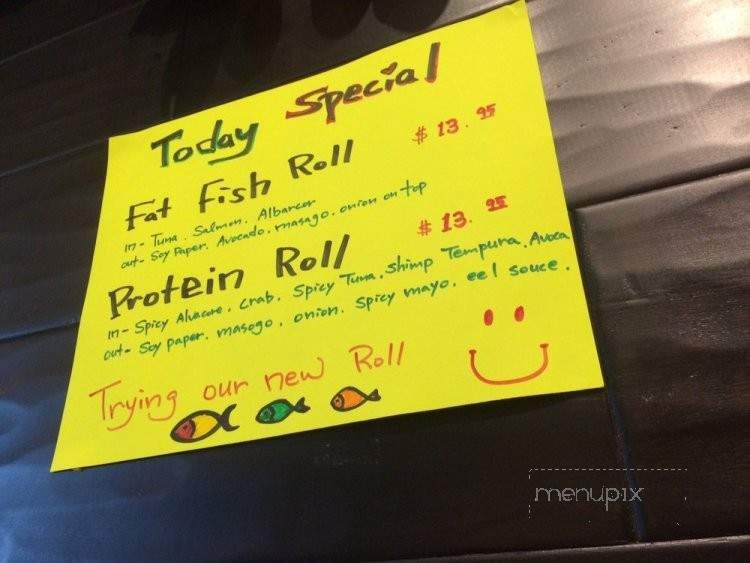 Today Special
Fat Fish Roll $ 13.95
in- Tuna. Salmon. Albarcor
out- Soy Paper. Avocado. masago. onion on top
Protein Roll $ 13.95
in- Spicy Alvacore. crab. Spicy Tuna. shimp Tempura. Avoca
out- Soy paper. masogo. onion. Spicy mayo. eel souce.
Trying our new Roll
menupix